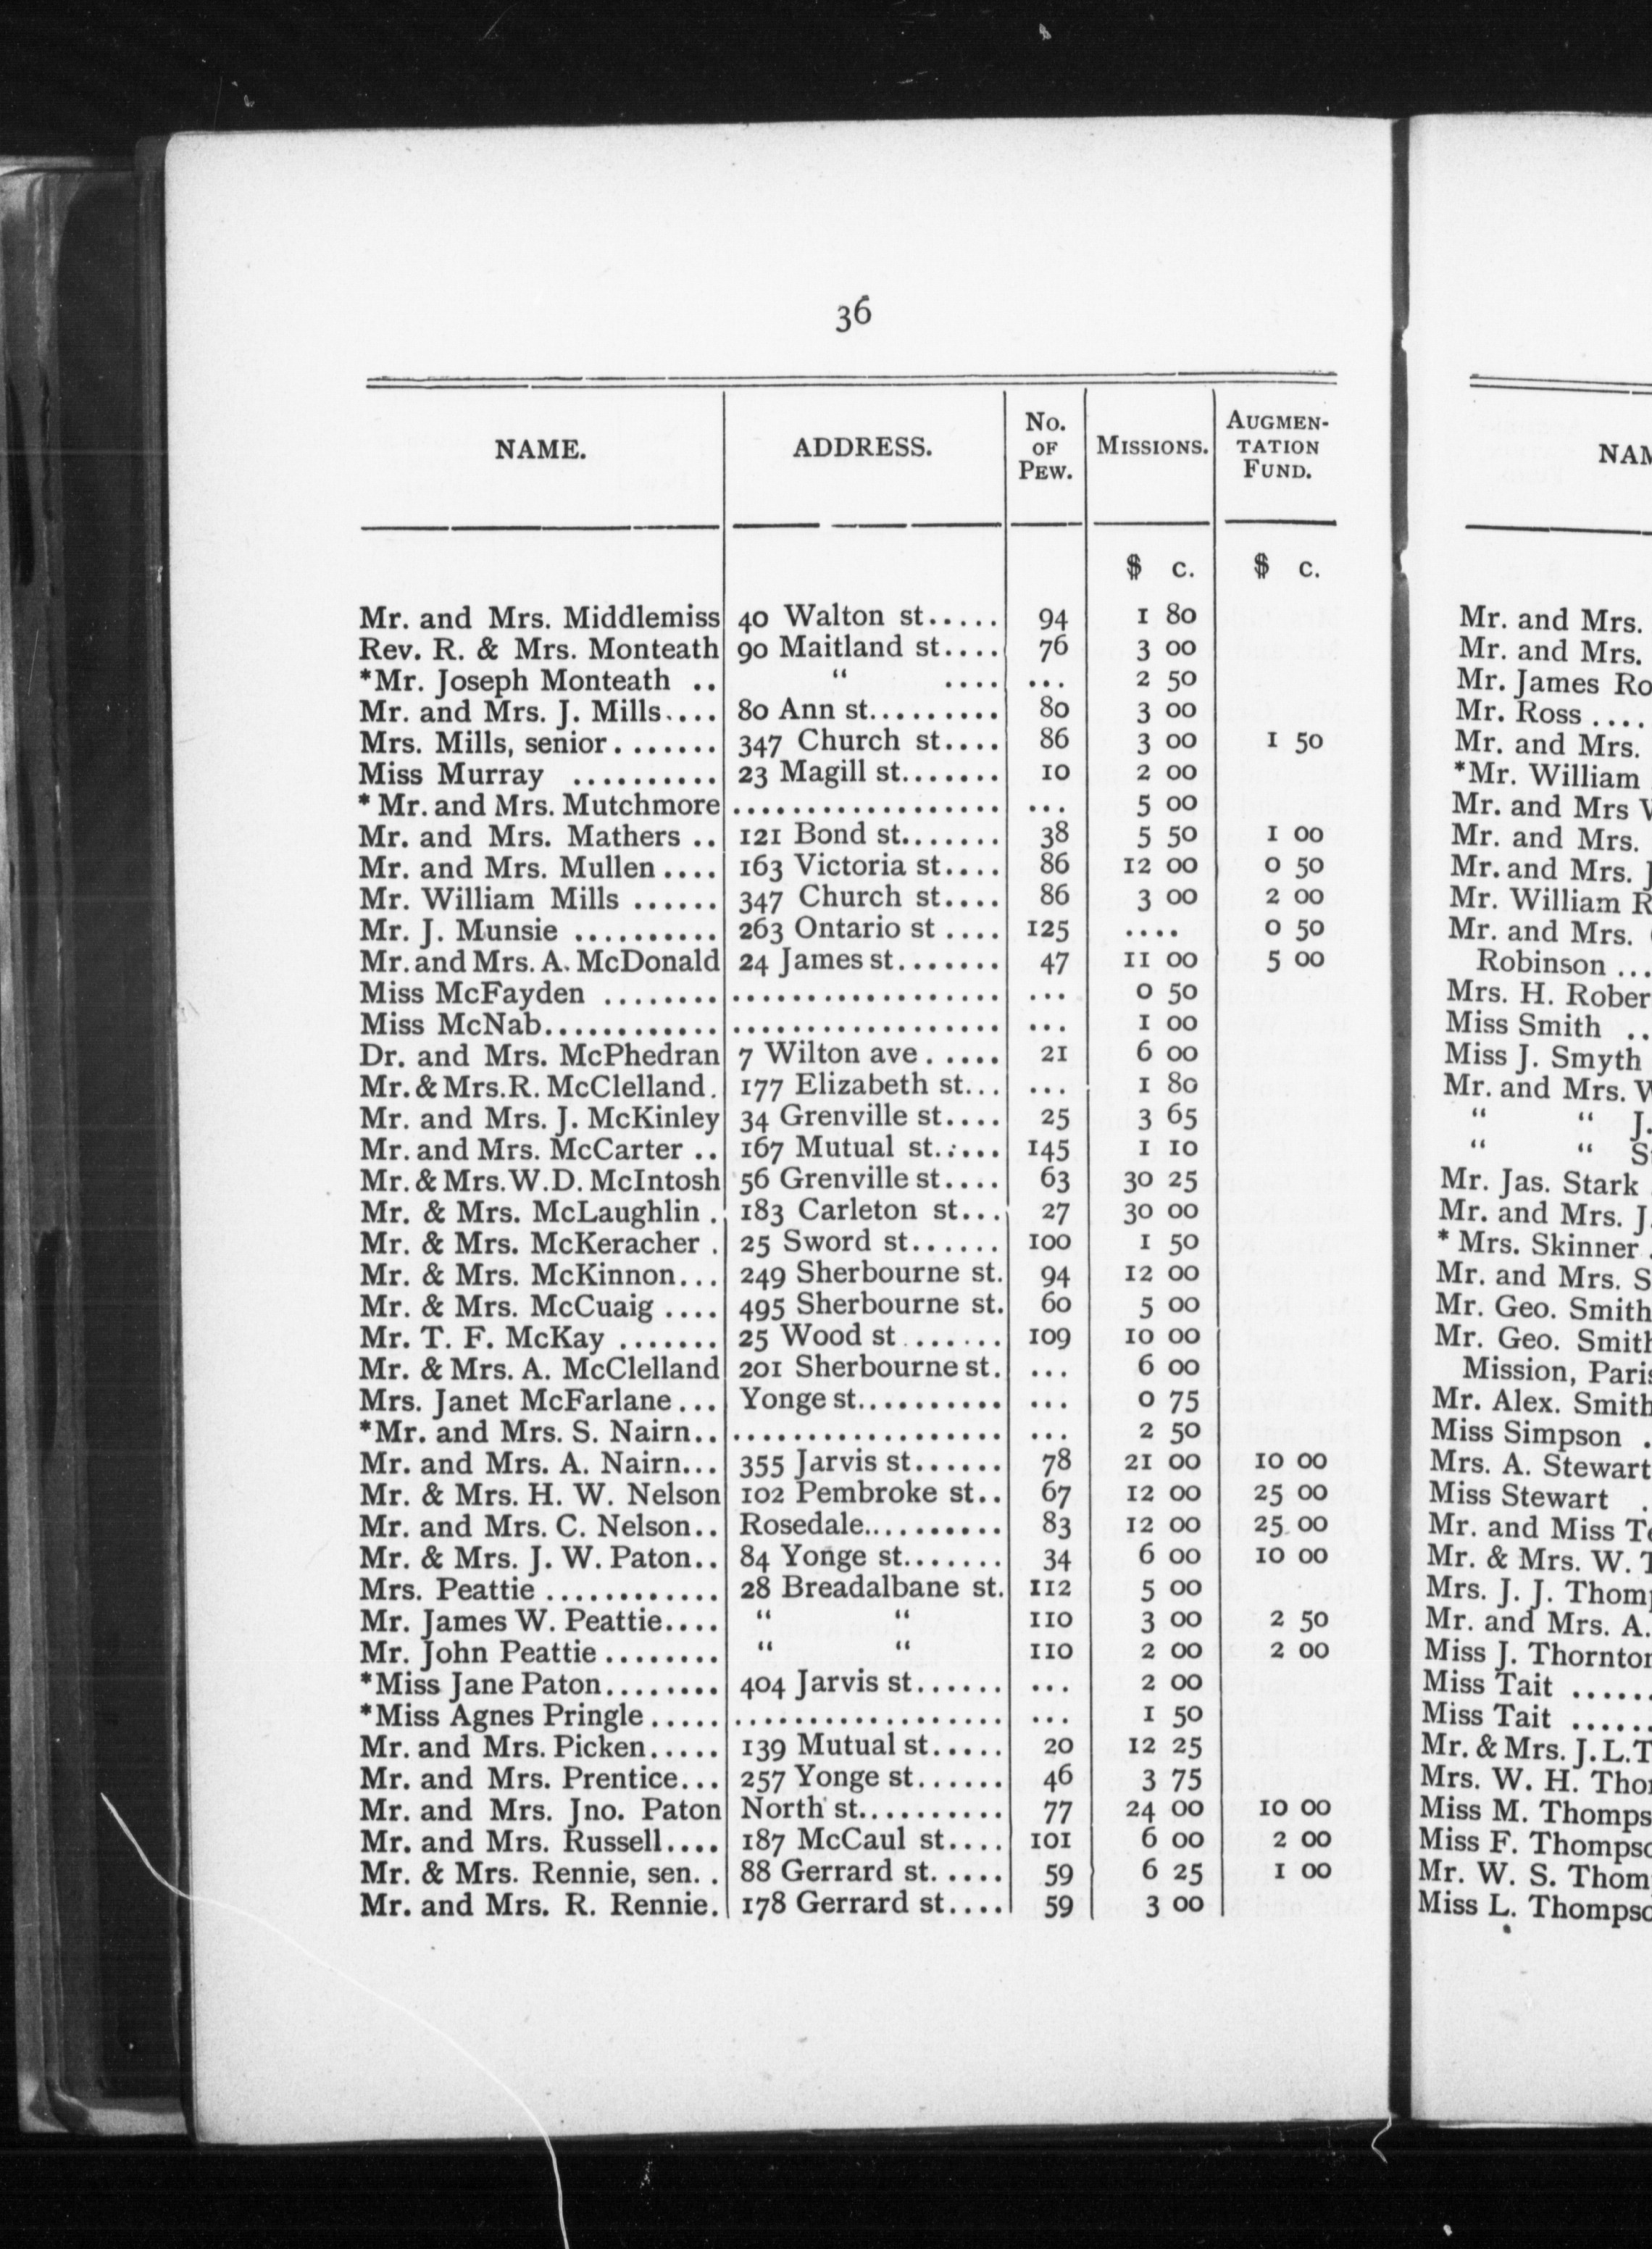 36
NAME. ADDRESS. No. OF PEW. MISSIONS. AUGMEN-TATION FUND.
$ c. $ c.
Mr. and Mrs. Middlemiss 40 Walton st..... 94 1 80
Rev. R. & Mrs. Monteath 90 Maitland st.... 76 3 00
*Mr. Joseph Monteath .. " .... ... 2 50
Mr. and Mrs. J. Mills.... 80 Ann st.......... 80 3 00
Mrs. Mills, senior....... 347 Church st.... 86 3 00 1 50
Miss Murray .......... 23 Magill st....... 10 2 00
* Mr. and Mrs. Mutchmore .................. ... 5 00
Mr. and Mrs. Mathers .. 121 Bond st....... 38 5 50 1 00
Mr. and Mrs. Mullen.... 163 Victoria st.... 86 12 00 0 50
Mr. William Mills ...... 347 Church st.... 86 3 00 2 00
Mr. J. Munsie .......... 263 Ontario st .... 125 .... 0 50
Mr. and Mrs. A. McDonald 24 James st....... 47 11 00 5 00
Miss McFayden ........ .................. ... 0 50
Miss McNab............ .................. ... 1 00
Dr. and Mrs. McPhedran 7 Wilton ave..... 21 6 00
Mr. & Mrs. R. McClelland. 177 Elizabeth st... ... 1 80
Mr. and Mrs. J. McKinley 34 Grenville st.... 25 3 65
Mr. and Mrs. McCarter .. 167 Mutual st..... 145 1 10
Mr. & Mrs. W. D. McIntosh 56 Grenville st.... 63 30 25
Mr. & Mrs. McLaughlin . 183 Carleton st... 27 30 00
Mr. & Mrs. McKeracher . 25 Sword st...... 100 1 50
Mr. & Mrs. McKinnon... 249 Sherbourne st. 94 12 00
Mr. & Mrs. McCuaig .... 495 Sherbourne st. 60 5 00
Mr. T. F. McKay ....... 25 Wood st....... 109 10 00
Mr. & Mrs. A. McClelland 201 Sherbourne st. ... 6 00
Mrs. Janet McFarlane... Yonge st.......... ... 0 75
*Mr. and Mrs. S. Nairn.. .................. ... 2 50
Mr. and Mrs. A. Nairn... 355 Jarvis st...... 78 21 00 10 00
Mr. & Mrs. H. W. Nelson 102 Pembroke st.. 67 12 00 25 00
Mr. and Mrs. C. Nelson.. Rosedale.......... 83 12 00 25 00
Mr. & Mrs. J. W. Paton.. 84 Yonge st....... 34 6 00 10 00
Mrs. Peattie ............ 28 Breadalbane st. 112 5 00
Mr. James W. Peattie.... " " 110 3 00 2 50
Mr. John Peattie ........ " " 110 2 00 2 00
*Miss Jane Paton........ 404 Jarvis st...... ... 2 00
*Miss Agnes Pringle..... .................. ... 1 50
Mr. and Mrs. Picken..... 139 Mutual st..... 20 12 25
Mr. and Mrs. Prentice... 257 Yonge st...... 46 3 75
Mr. and Mrs. Jno. Paton North st.......... 77 24 00 10 00
Mr. and Mrs. Russell.... 187 McCaul st.... 101 6 00 2 00
Mr. & Mrs. Rennie, sen. . 88 Gerrard st. .... 59 6 25 1 00
Mr. and Mrs. R. Rennie. 178 Gerrard st.... 59 3 00
Mr. and Mrs.
Mr. and Mrs.
Mr. James
Mr. Ross ....
Mr. and Mrs.
*Mr. William
Mr. and Mrs
Mr. and Mrs.
Mr. and Mrs.
Mr. William
Mr. and Mrs.
Robinson ...
Mrs. H.
Miss Smith ..
Miss J. Smyth
Mr. and Mrs.
" " J.
" "
Mr. Jas. Stark
Mr. and Mrs. J.
* Mrs. Skinner.
Mr. and Mrs.
Mr. Geo. Smith
Mr. Geo. Smith
Mission,
Mr. Alex. Smith
Miss Simpson .
Mrs. A. Stewart
Miss Stewart .
Mr. and Miss
Mr. & Mrs. W.
Mrs. J. J.
Mr. and Mrs. A.
Miss J.
Miss Tait ......
Miss Tait ......
Mr. & Mrs. J. L.
Mrs. W. H.
Miss M.
Miss F.
Mr. W. S.
Miss L.